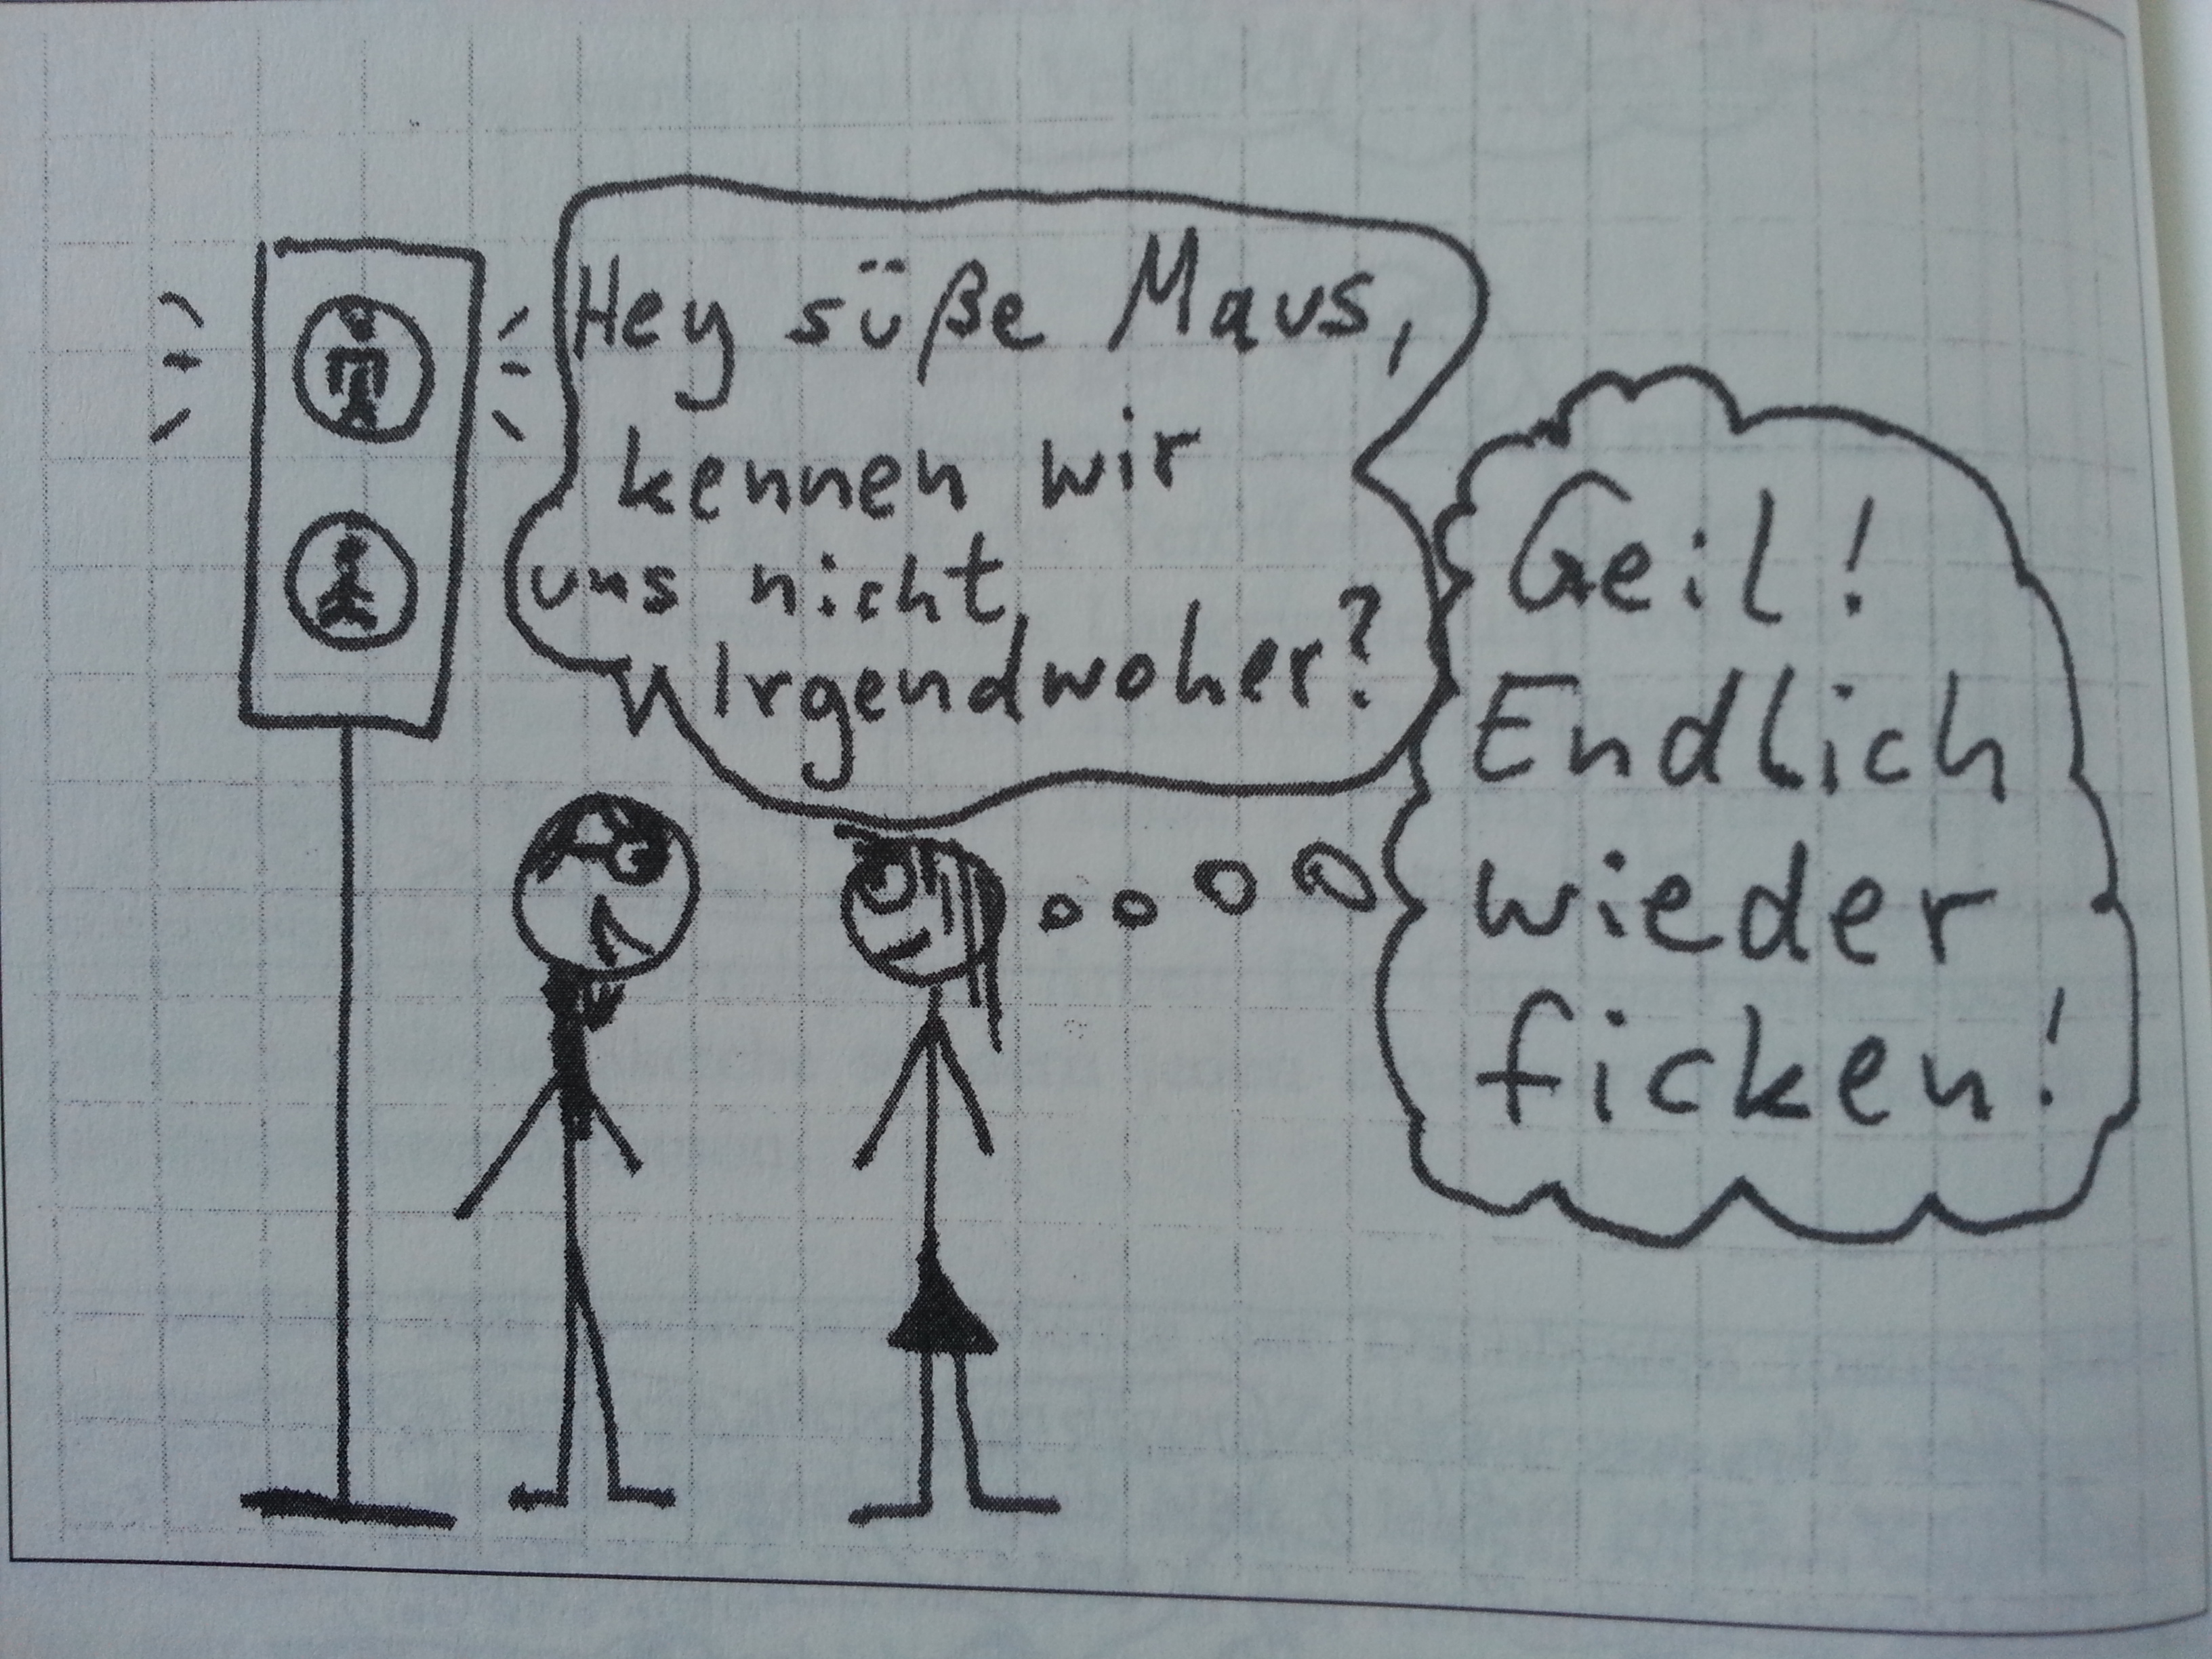 Hey süße Maus,
kennen wir
uns nicht
Irgendwoher?
Geil!
Endlich
wieder
ficken!